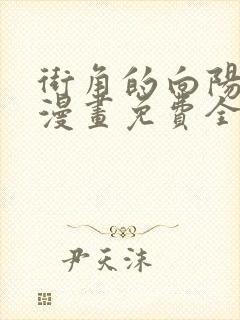 街角的向陽
漫畫免費全
尹天沫